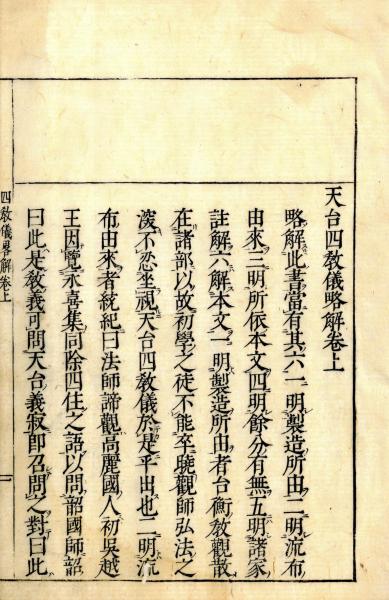 天台四教儀略解卷上
略解此書當有其六一明製造所由二明流布
由來三明所依本文四明餘分有無五明諸家
註解六解本文一明製造所由者台衡教觀散
在諸部以故初學之徒不能卒曉觀師弘法之
深不忍坐視天台四教儀於是乎出也二明流
布由來者統紀曰法師諦觀高麗國人初吳越
王因覽永嘉集同除四住之語以問韶國師韶
曰此是教義可問天台義寂即召問之對曰此
四教儀畧解卷上
一